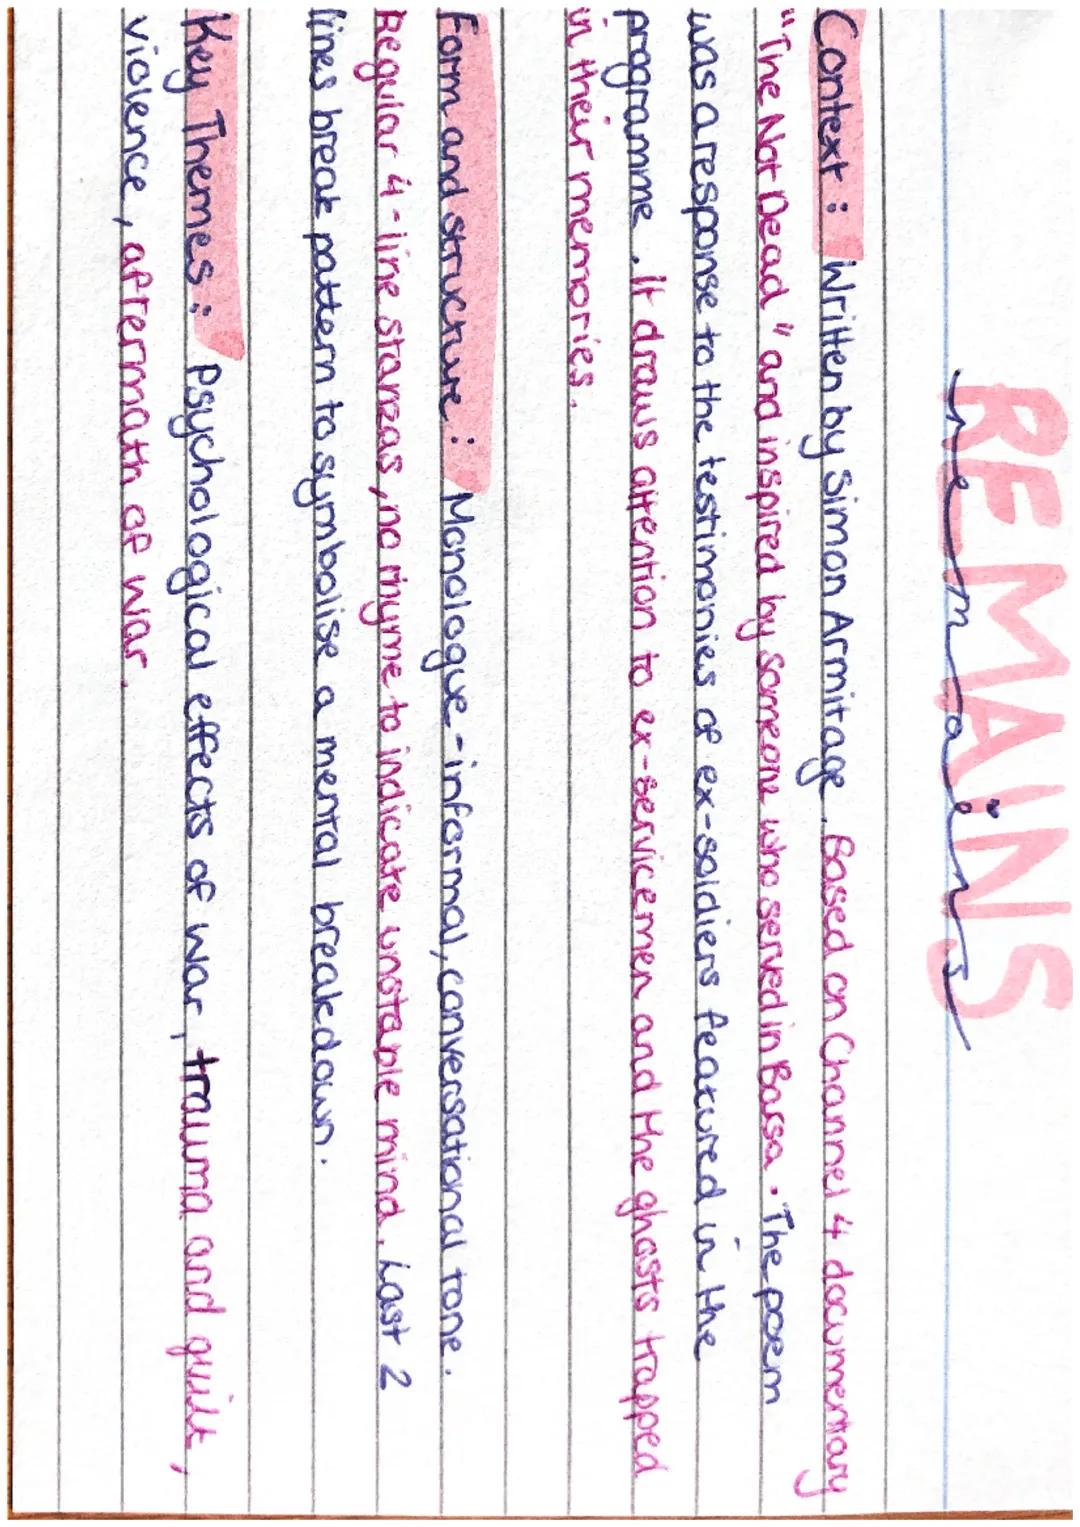 REMAINS
remains
Context: Written by Simon Armitage. Based on Channel 4 documentary
"The Not Dead" and inspired by someone who served in Barsa. The poem
was a response to the testimonies of ex-soldiers featured in the
programme. It draws attention to ex-servicemen and the ghosts trapped
in their memories.
Form and structure: Monologue - informal, conversational tone.
Regular 4-line stanzas, no rhyme to indicate unstable mind. Last 2
lines break pattern to symbolise a mental breakdown.
Key Themes: Psychological effects of war, trauma and guilt,
violence, aftermath of war.